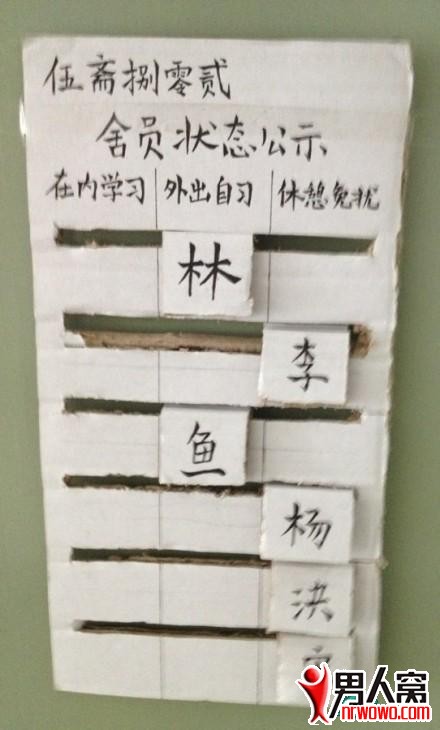 伍斋捌零贰
舍员状态公示
在内学习 外出自习 休憩免扰
林
李
鱼
杨
洪
男人窝
nrwowo.com